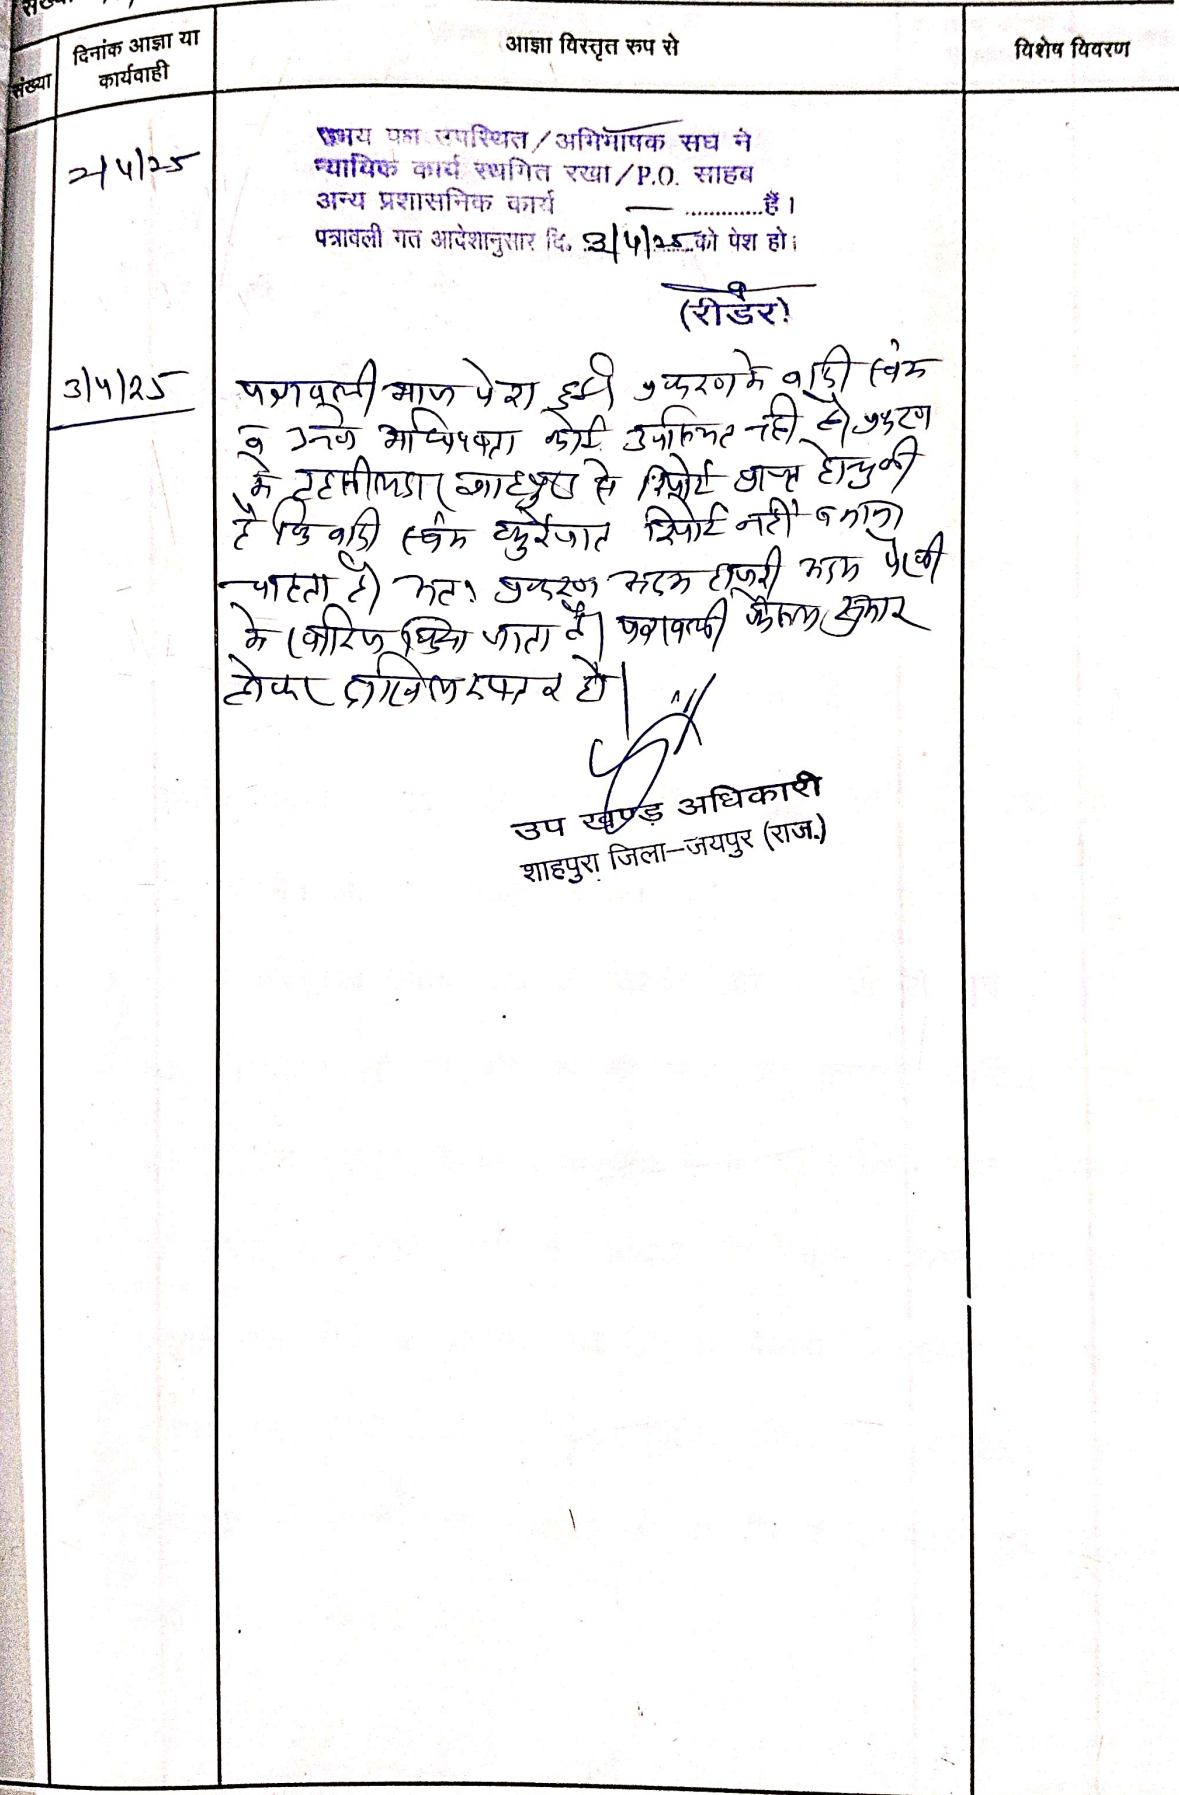 संख्या
दिनांक आज्ञा या
कार्यवाही
आज्ञा विस्तृत रुप से
विशेष विवरण
2/4/25
उभय पक्ष उपस्थित/अभिभाषक संघ ने
न्यायिक कार्य स्थगित रखा/P.O. साहब
अन्य प्रशासनिक कार्य — ............. हैं।
पत्रावली गत आदेशानुसार दि. 3/4/25 को पेश हो।
(रीडर)
3/4/25
पत्रावली आज पेश हुयी प्रकरण के वादी स्वंम
व उनके अधिवक्ता कोई उपस्थित नही है। प्रकरण
मे तहसीलदार शाहपुरा से रिपोर्ट प्राप्त हो चुकी
है कि वादी स्वंम कुर्रेजात रिपोर्ट नहीं बनाना
चाहता है। अतः प्रकरण अदम हाजरी अदम पैरवी
मे खारिज किया जाता है। पत्रावली फैसल शुमार
होकर दाखिल दफ्तर हो।
उप खण्ड अधिकारी
शाहपुरा जिला-जयपुर (राज.)